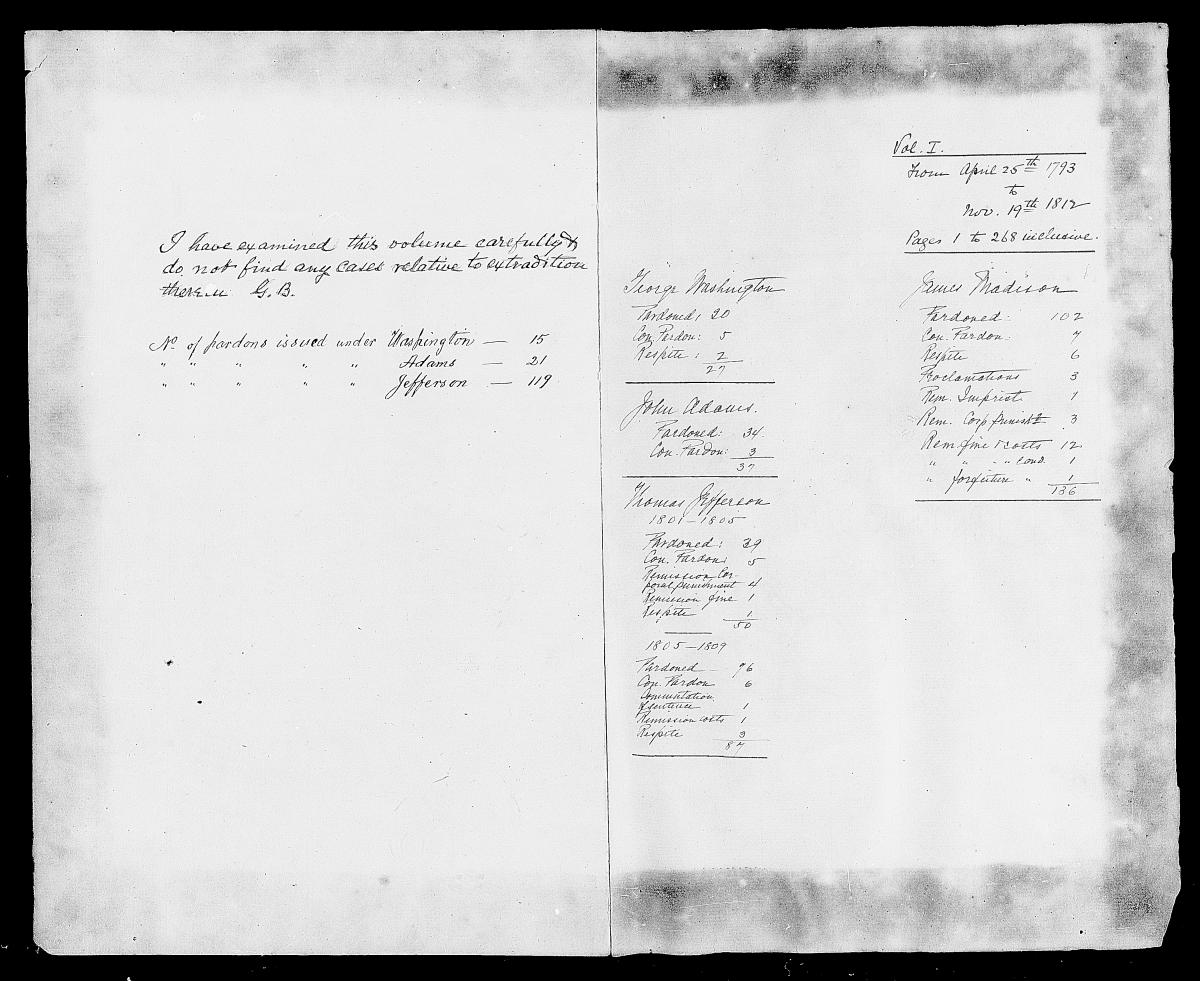 I have examined this volume carefully &
do not find any cases relative to extradition
therein G.B.
No. of pardons issued under Washington — 15
" " " " " Adams — 21
" " " " " Jefferson — 119
Vol. I.
From April 25th 1793
to
Nov. 19th 1812
Pages 1 to 268 inclusive.
George Washington
Pardoned: 20
Con. Pardon: 5
Respite: 2
27
John Adams.
Pardoned: 34.
Con. Pardon: 3
37
Thomas Jefferson
1801–1805
Pardoned: 39
Con. Pardon: 5
Remission Cor-
poral punishment 4
Remission fine 1
Respite 1
50
1805–1809
Pardoned — 76
Con. Pardon 6
Commutation
of sentence 1
Remission costs 1
Respite 3
87
James Madison
Pardoned: 102
Con. Pardon: 7
Respite 6
Proclamations 3
Rem. Imprist 1
Rem. Corp punisht 3
Rem fine & costs 12
" " " " cond. 1
" forfeiture " 1
136